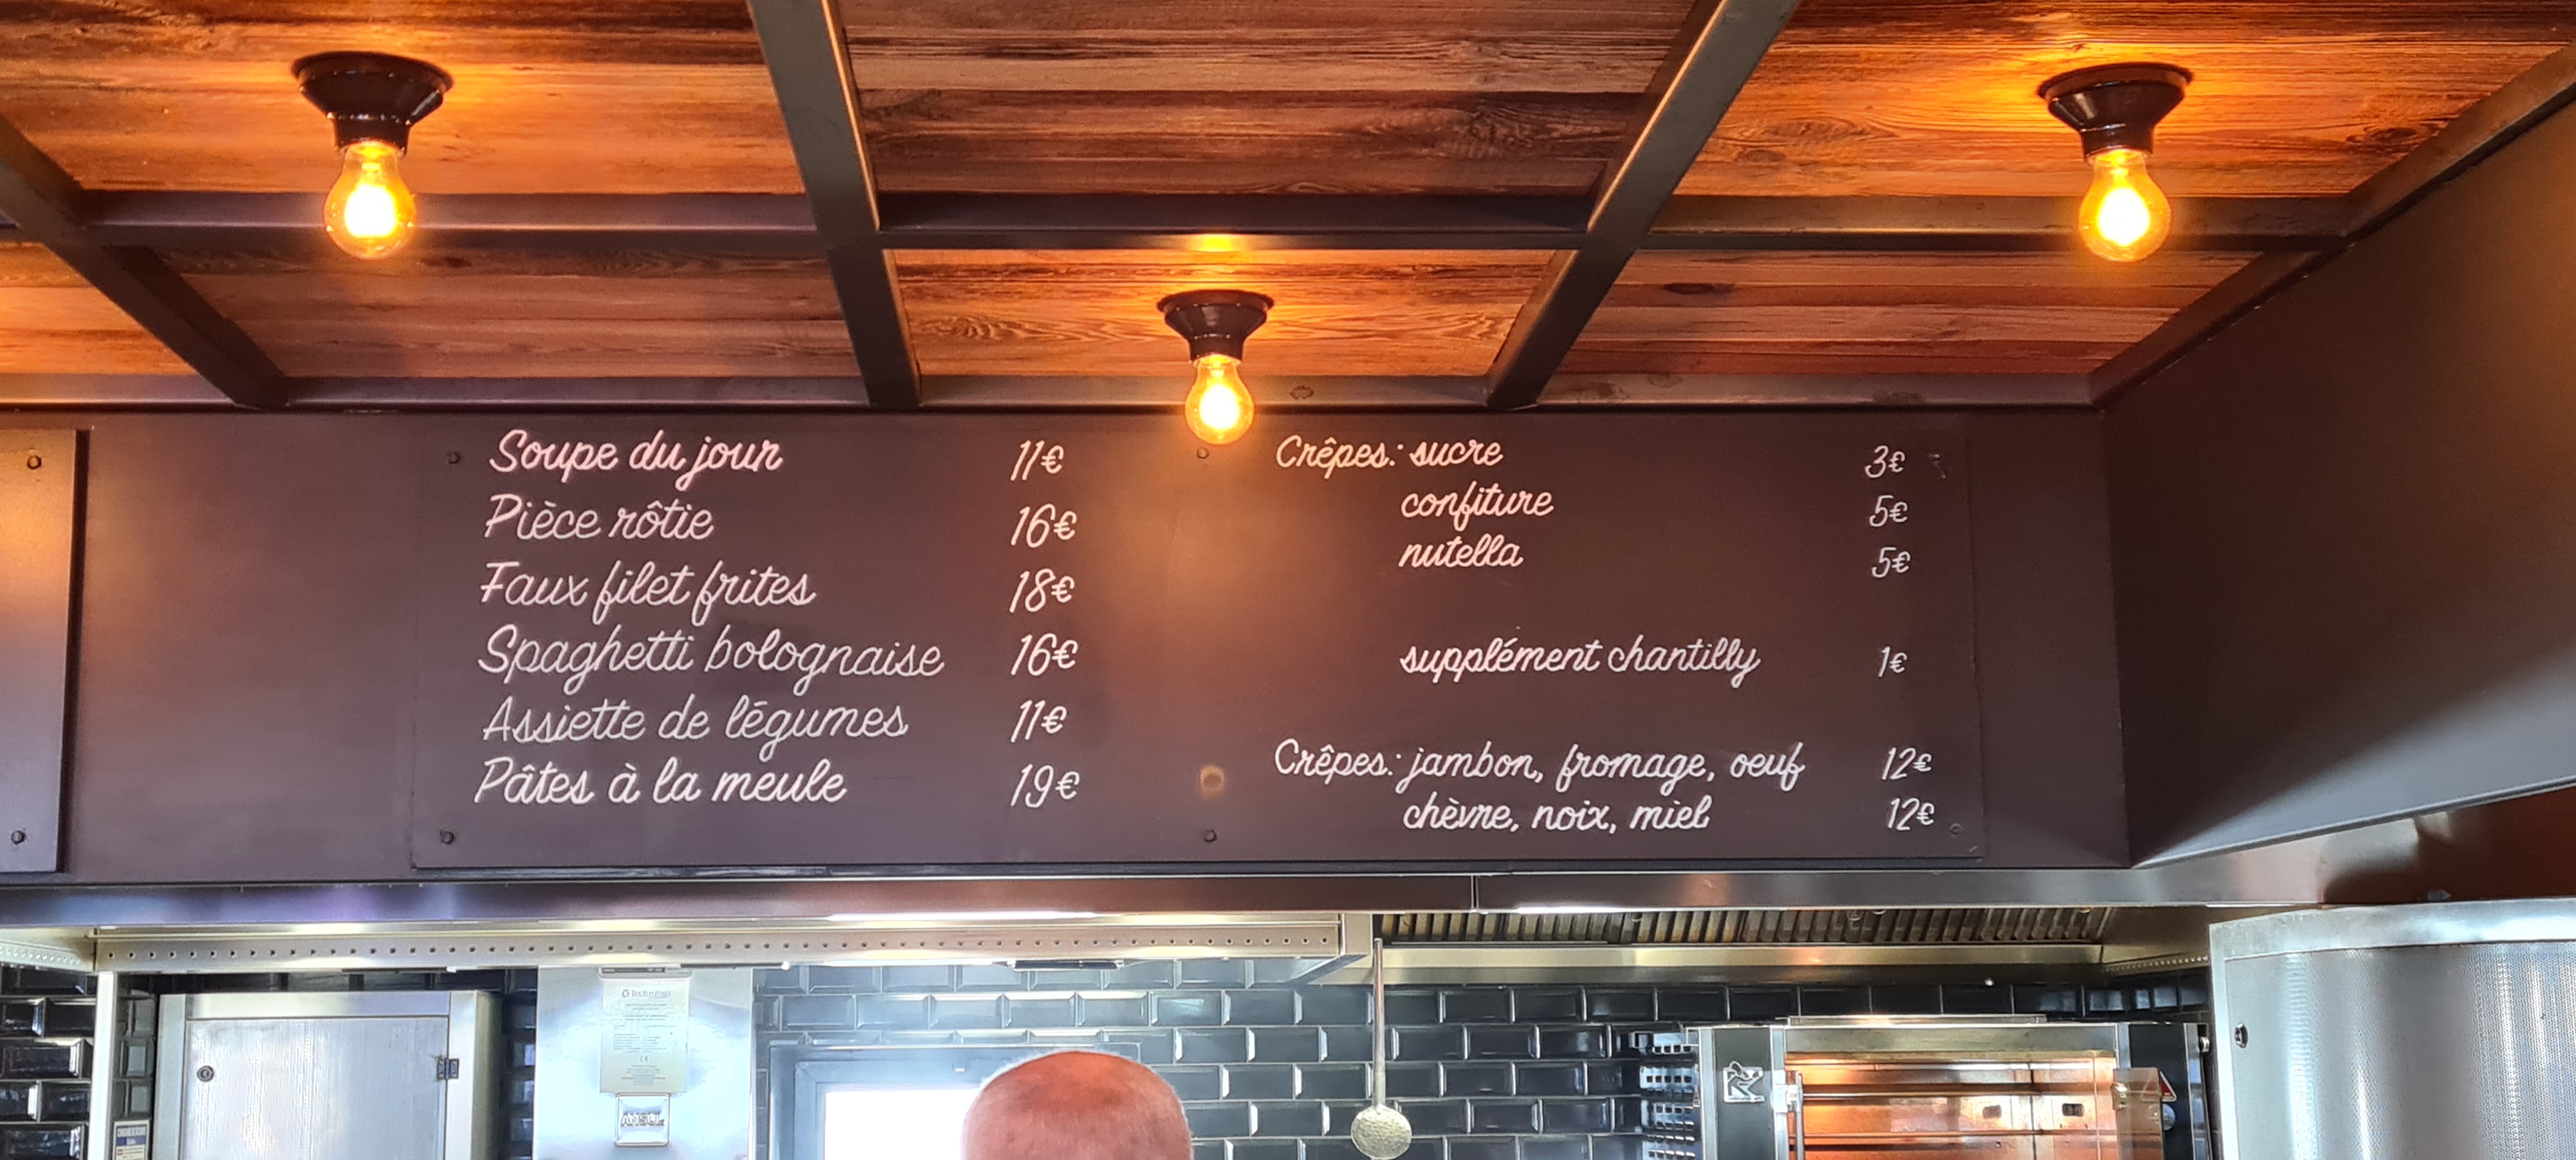 Soupe du jour 11€
Pièce rôtie 16€
Faux filet frites 18€
Spaghetti bolognaise 16€
Assiette de légumes 11€
Pâtes à la meule 19€
Crêpes: sucre 3€
confiture 5€
nutella 5€
supplément chantilly 1€
Crêpes: jambon, fromage, oeuf 12€
chèvre, noix, miel 12€